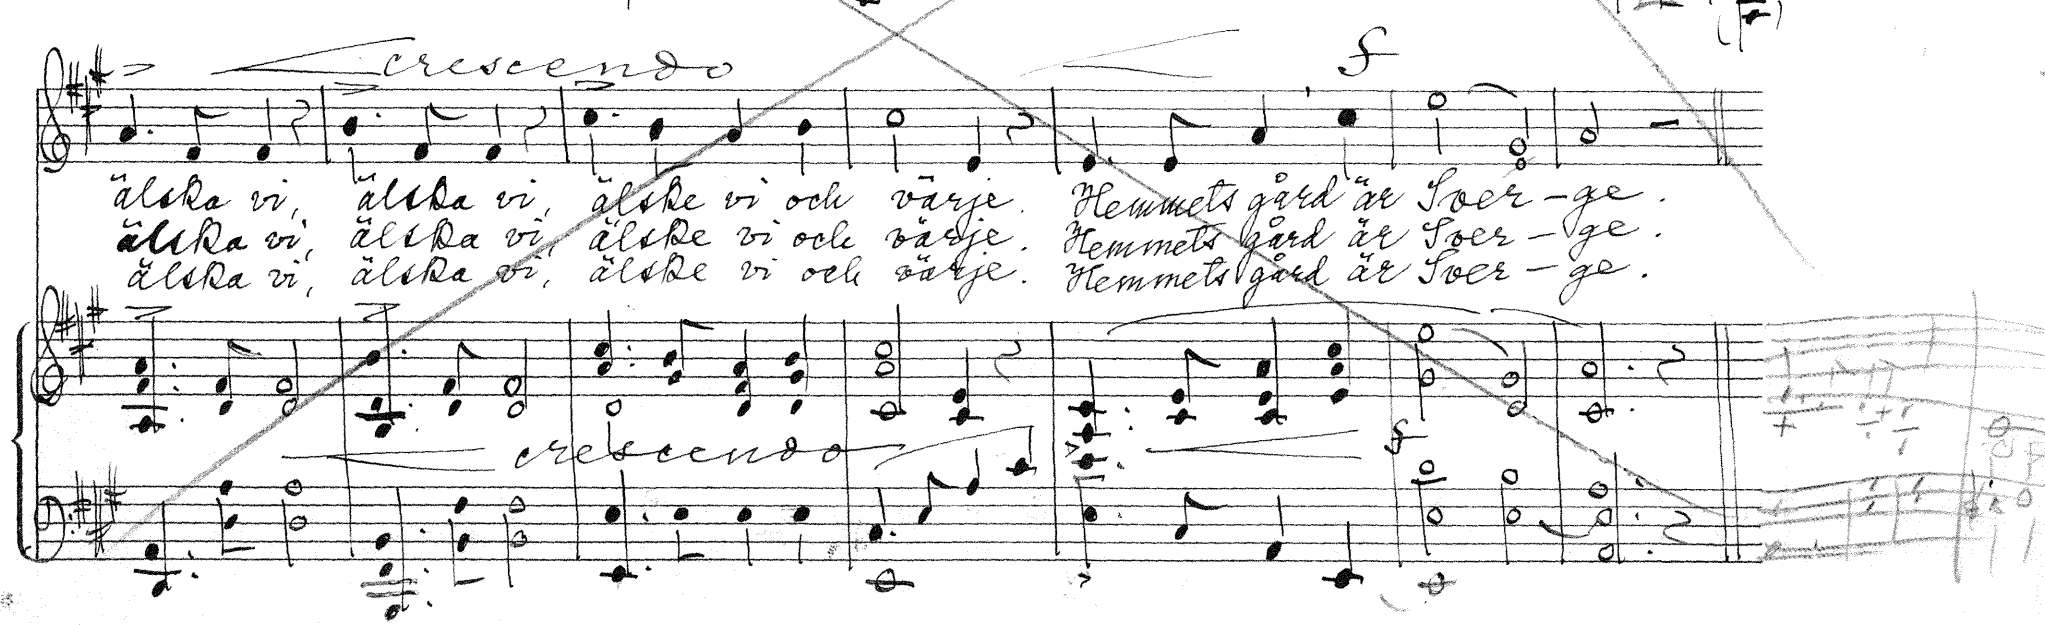 crescendo f
älska vi, älska vi, älske vi och värje. Hemmets gård är Sver-ge.
älska vi, älska vi, älske vi och värje. Hemmets gård är Sver-ge.
älska vi, älska vi, älske vi och värje. Hemmets gård är Sver-ge.
crescendo f